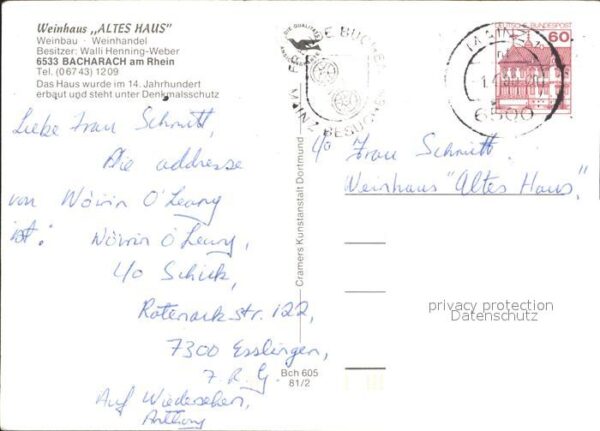 Weinhaus „ALTES HAUS"
Weinbau · Weinhandel
Besitzer: Walli Henning-Weber
6533 BACHARACH am Rhein
Tel. (06743) 1209
Das Haus wurde im 14. Jahrhundert
erbaut und steht unter Denkmalsschutz
Liebe Frau Schmitt,
Die addresse
von Nóirín O'Leary
ist:
Nóirín O'Leary,
c/o Schick,
7300 Esslingen,
Auf Wiedersehen,
Anthony
Cramers Kunstanstalt Dortmund
Bch 605
81/2
MAINZ BESUCHEN
DEUTSCHE BUNDESPOST
60
MAINZ
6500
c/o Frau Schmitt
Weinhaus "Altes Haus,"
privacy protection
Datenschutz